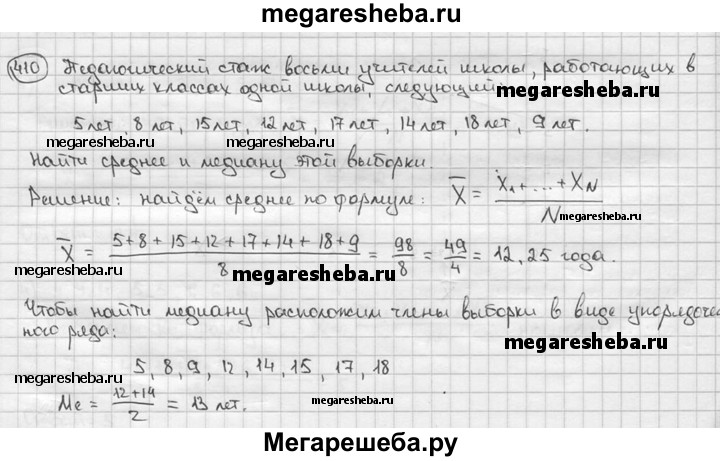 megaresheba.ru
410 Педагогический стаж восьми учителей школы, работающих в
старших классах одной школы, следующий:
megaresheba.ru
5 лет, 8 лет, 15 лет, 12 лет, 17 лет, 14 лет, 18 лет, 9 лет.
megaresheba.ru megaresheba.ru
Найти среднее и медиану этой выборки.
Решение: найдём среднее по формуле: X̅ = (X₁ + ... + X_N) / N
megaresheba.ru
X̅ = (5+8+15+12+17+14+18+9) / 8 = 98/8 = 49/4 = 12,25 года.
megaresheba.ru megaresheba.ru
Чтобы найти медиану расположим члены выборки в виде упорядоче
ного ряда:
megaresheba.ru
5, 8, 9, 12, 14, 15, 17, 18
megaresheba.ru
Me = (12+14) / 2 = 13 лет.
megaresheba.ru megaresheba.ru
Мегарешеба.ру